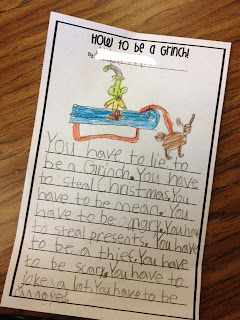 HOW TO BE A GRINCH!
By:
You have to lie to
be a Grinch. You have
to steal Christmas. You
have to be mean. You
have to be angry. You have
to steal presents. You have
to be a thief. You have
to be scary. You have to
joke a lot. You have to be